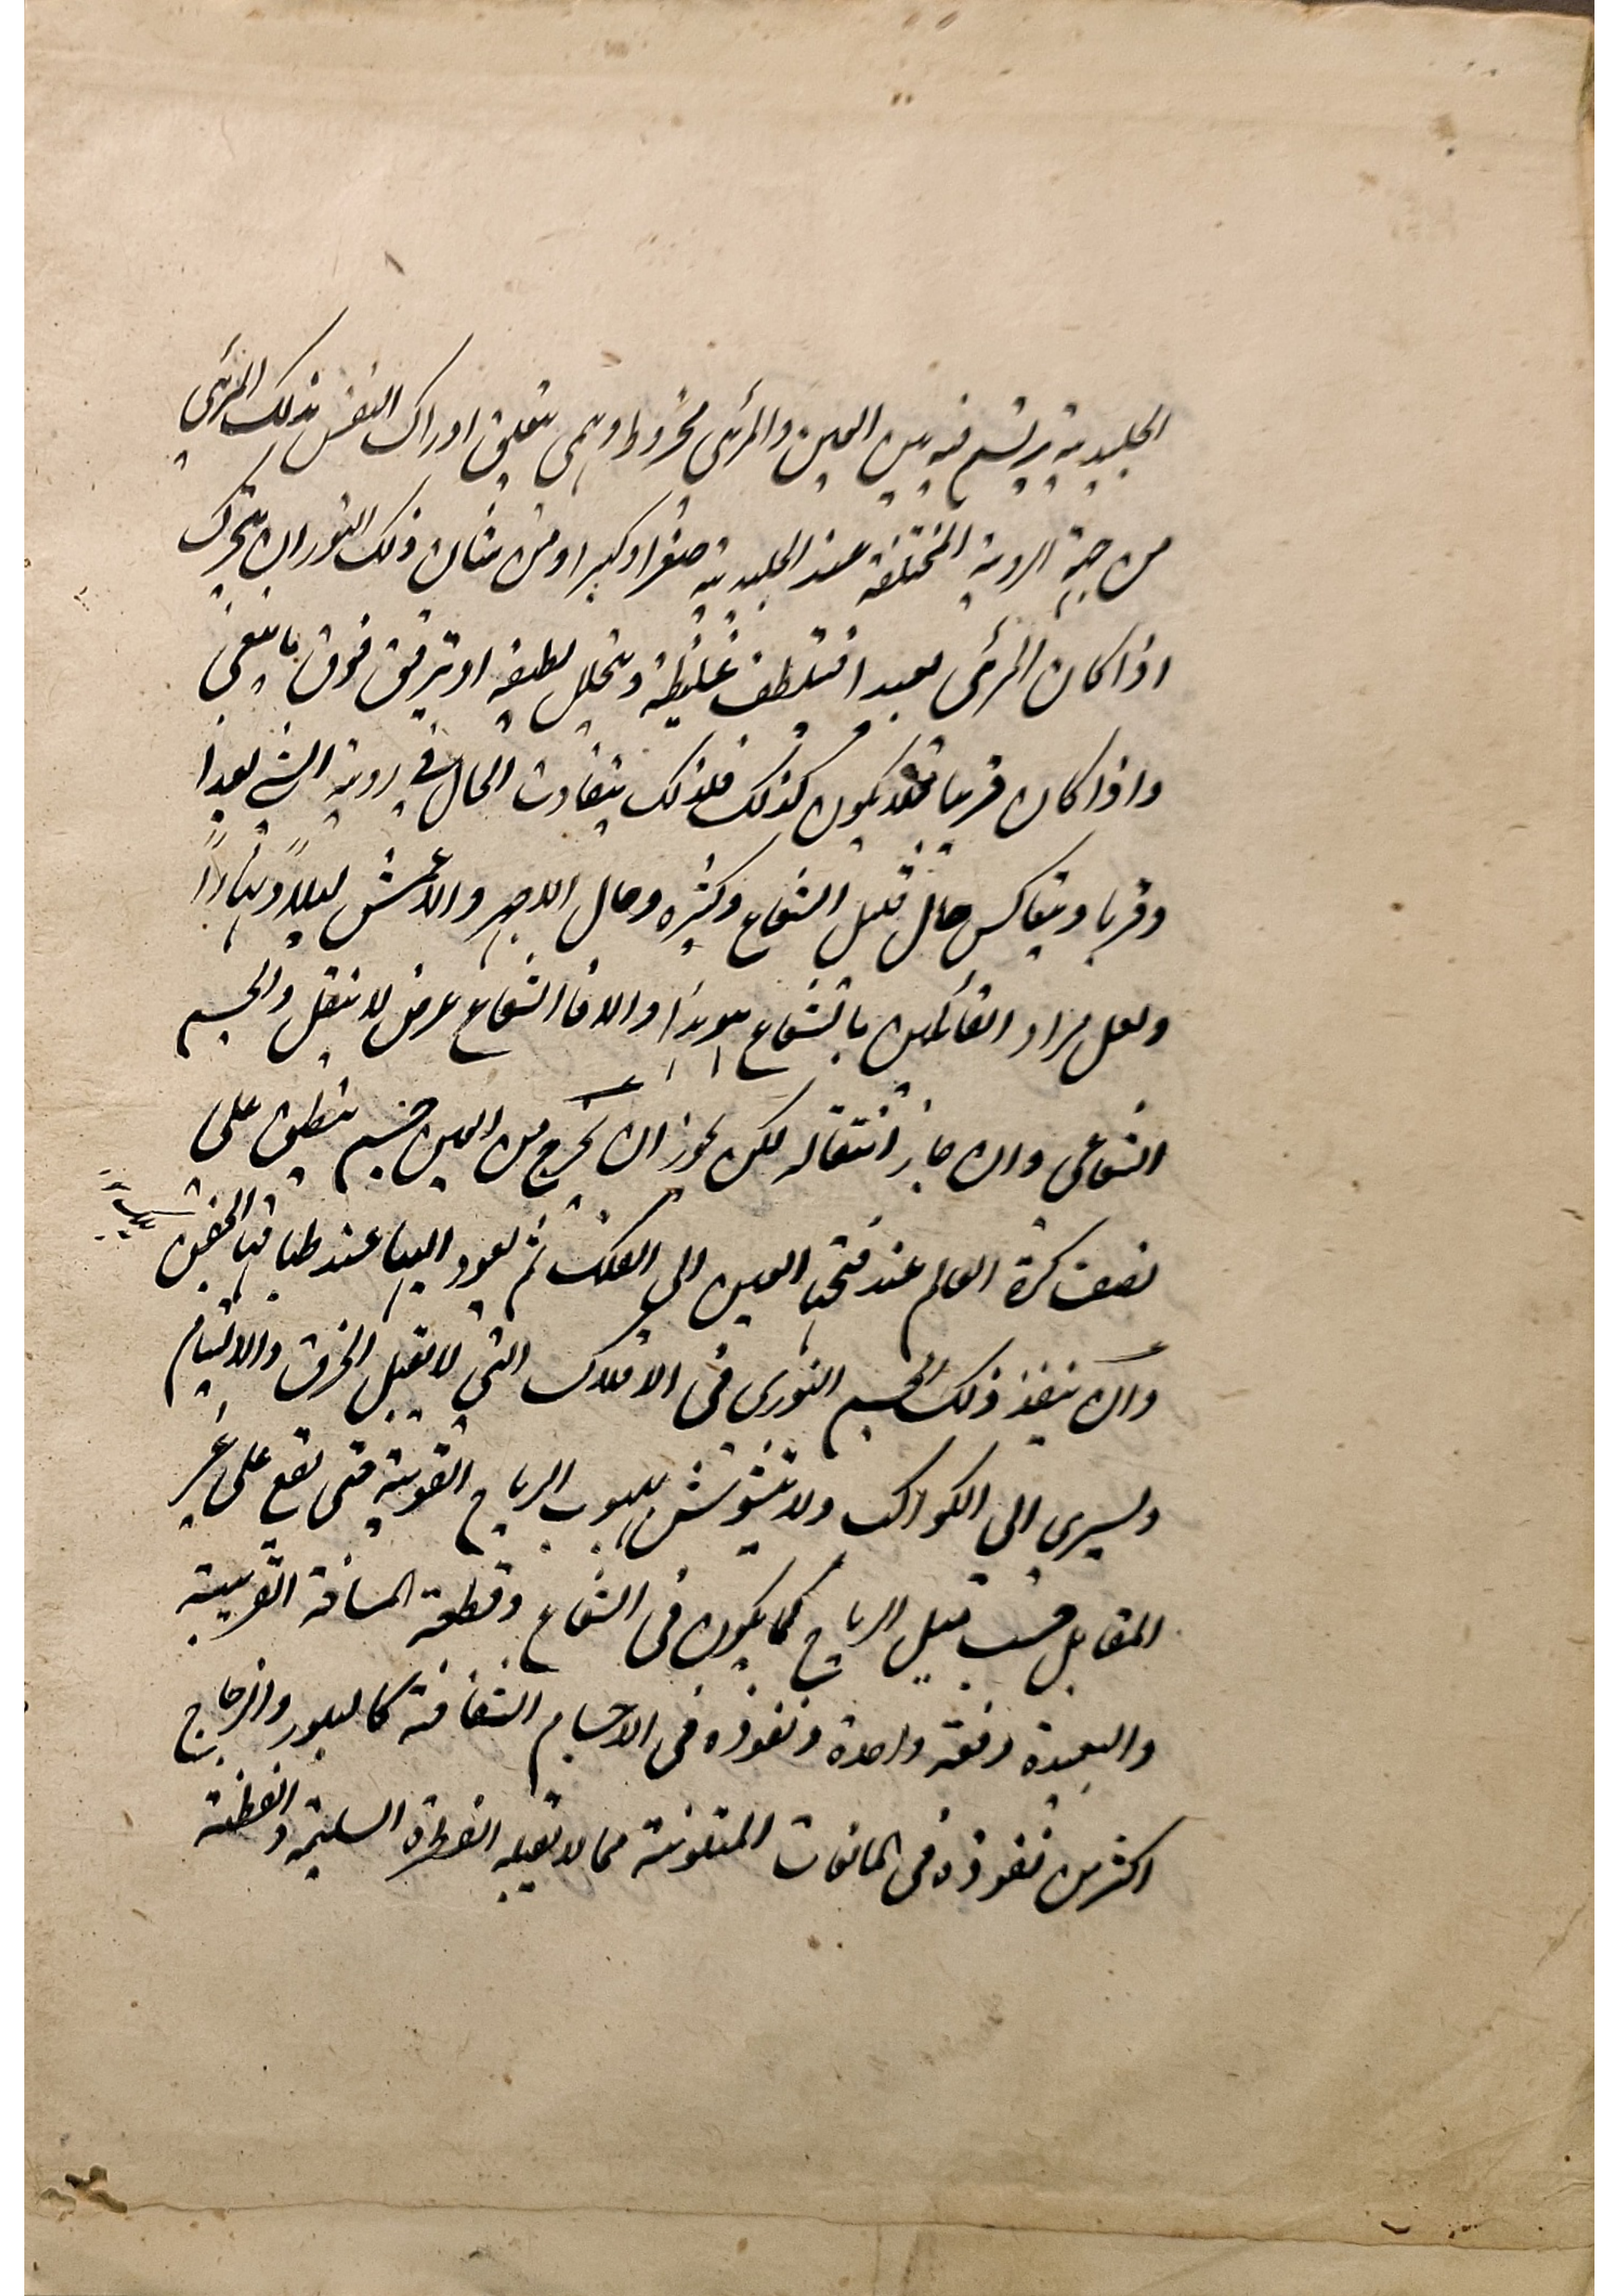 الجليدية يرتسم فيه بين العين والمرئى مخروط وهمى يتعلق ادراك النفس بذلك المرئى
من جهة الروية المختلفة عند الجليدية صغرا وكبرا ومن شان ذلك النور ان يتحرك
اذا كان المرئى بعيدا فيلطف غليظه ويتحلل لطيفه او ترقيق فوق ما ينبغى
واذا كان قريبا فقد يكون كذلك فلذلك يتفاوت الحال فى روية الشى بعدا
وقربا ويتعاكس حال قليل الشعاع وكثيره وحال الاجهر والاعمش ليلاً ونهاراً
ولعل مراد القائلين بالشعاع هو هذا والا فالشعاع عرض لا ينتقل والجسم
الشعاعى وان جاز انتقاله لكن يجوز ان يخرج من العين جسم ينطبق على
نصف كرة العالم عند فتحها العين الى الفلك ثم يعود اليها عند طباقها الجفن
وان ينفذ ذلك الجسم النورى فى الافلاك التى لا تقبل الخرق والالتيام
ويسرى الى الكواكب ولا يتشوش بهبوب الرياح القوية حتى تقع على غير
المقابل حسب ميل الرياح كما يكون فى الشعاع وقطعه المسافة القريبة
والبعيدة دفعة واحدة ونفوذه فى الاجسام الشفافة كالبلور والزجاج
اكثر من نفوذه فى المائعات المتلونة مما لا تقبله الفطرة السليمة والفطنة